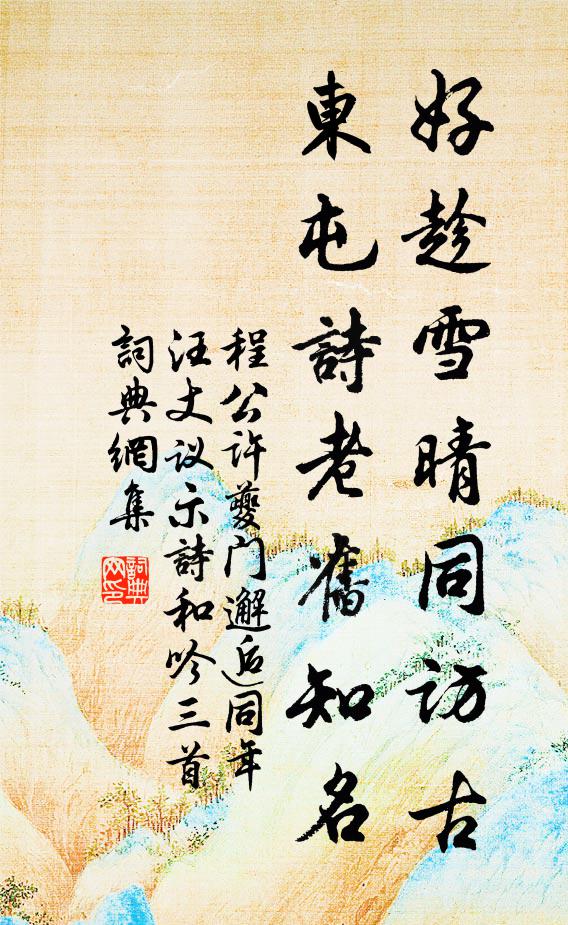 好趁雪晴同訪古
東屯詩老舊知名
程公许夔门邂逅同年
汪丈议示詩和吟三首
詞典網集
詞典网印